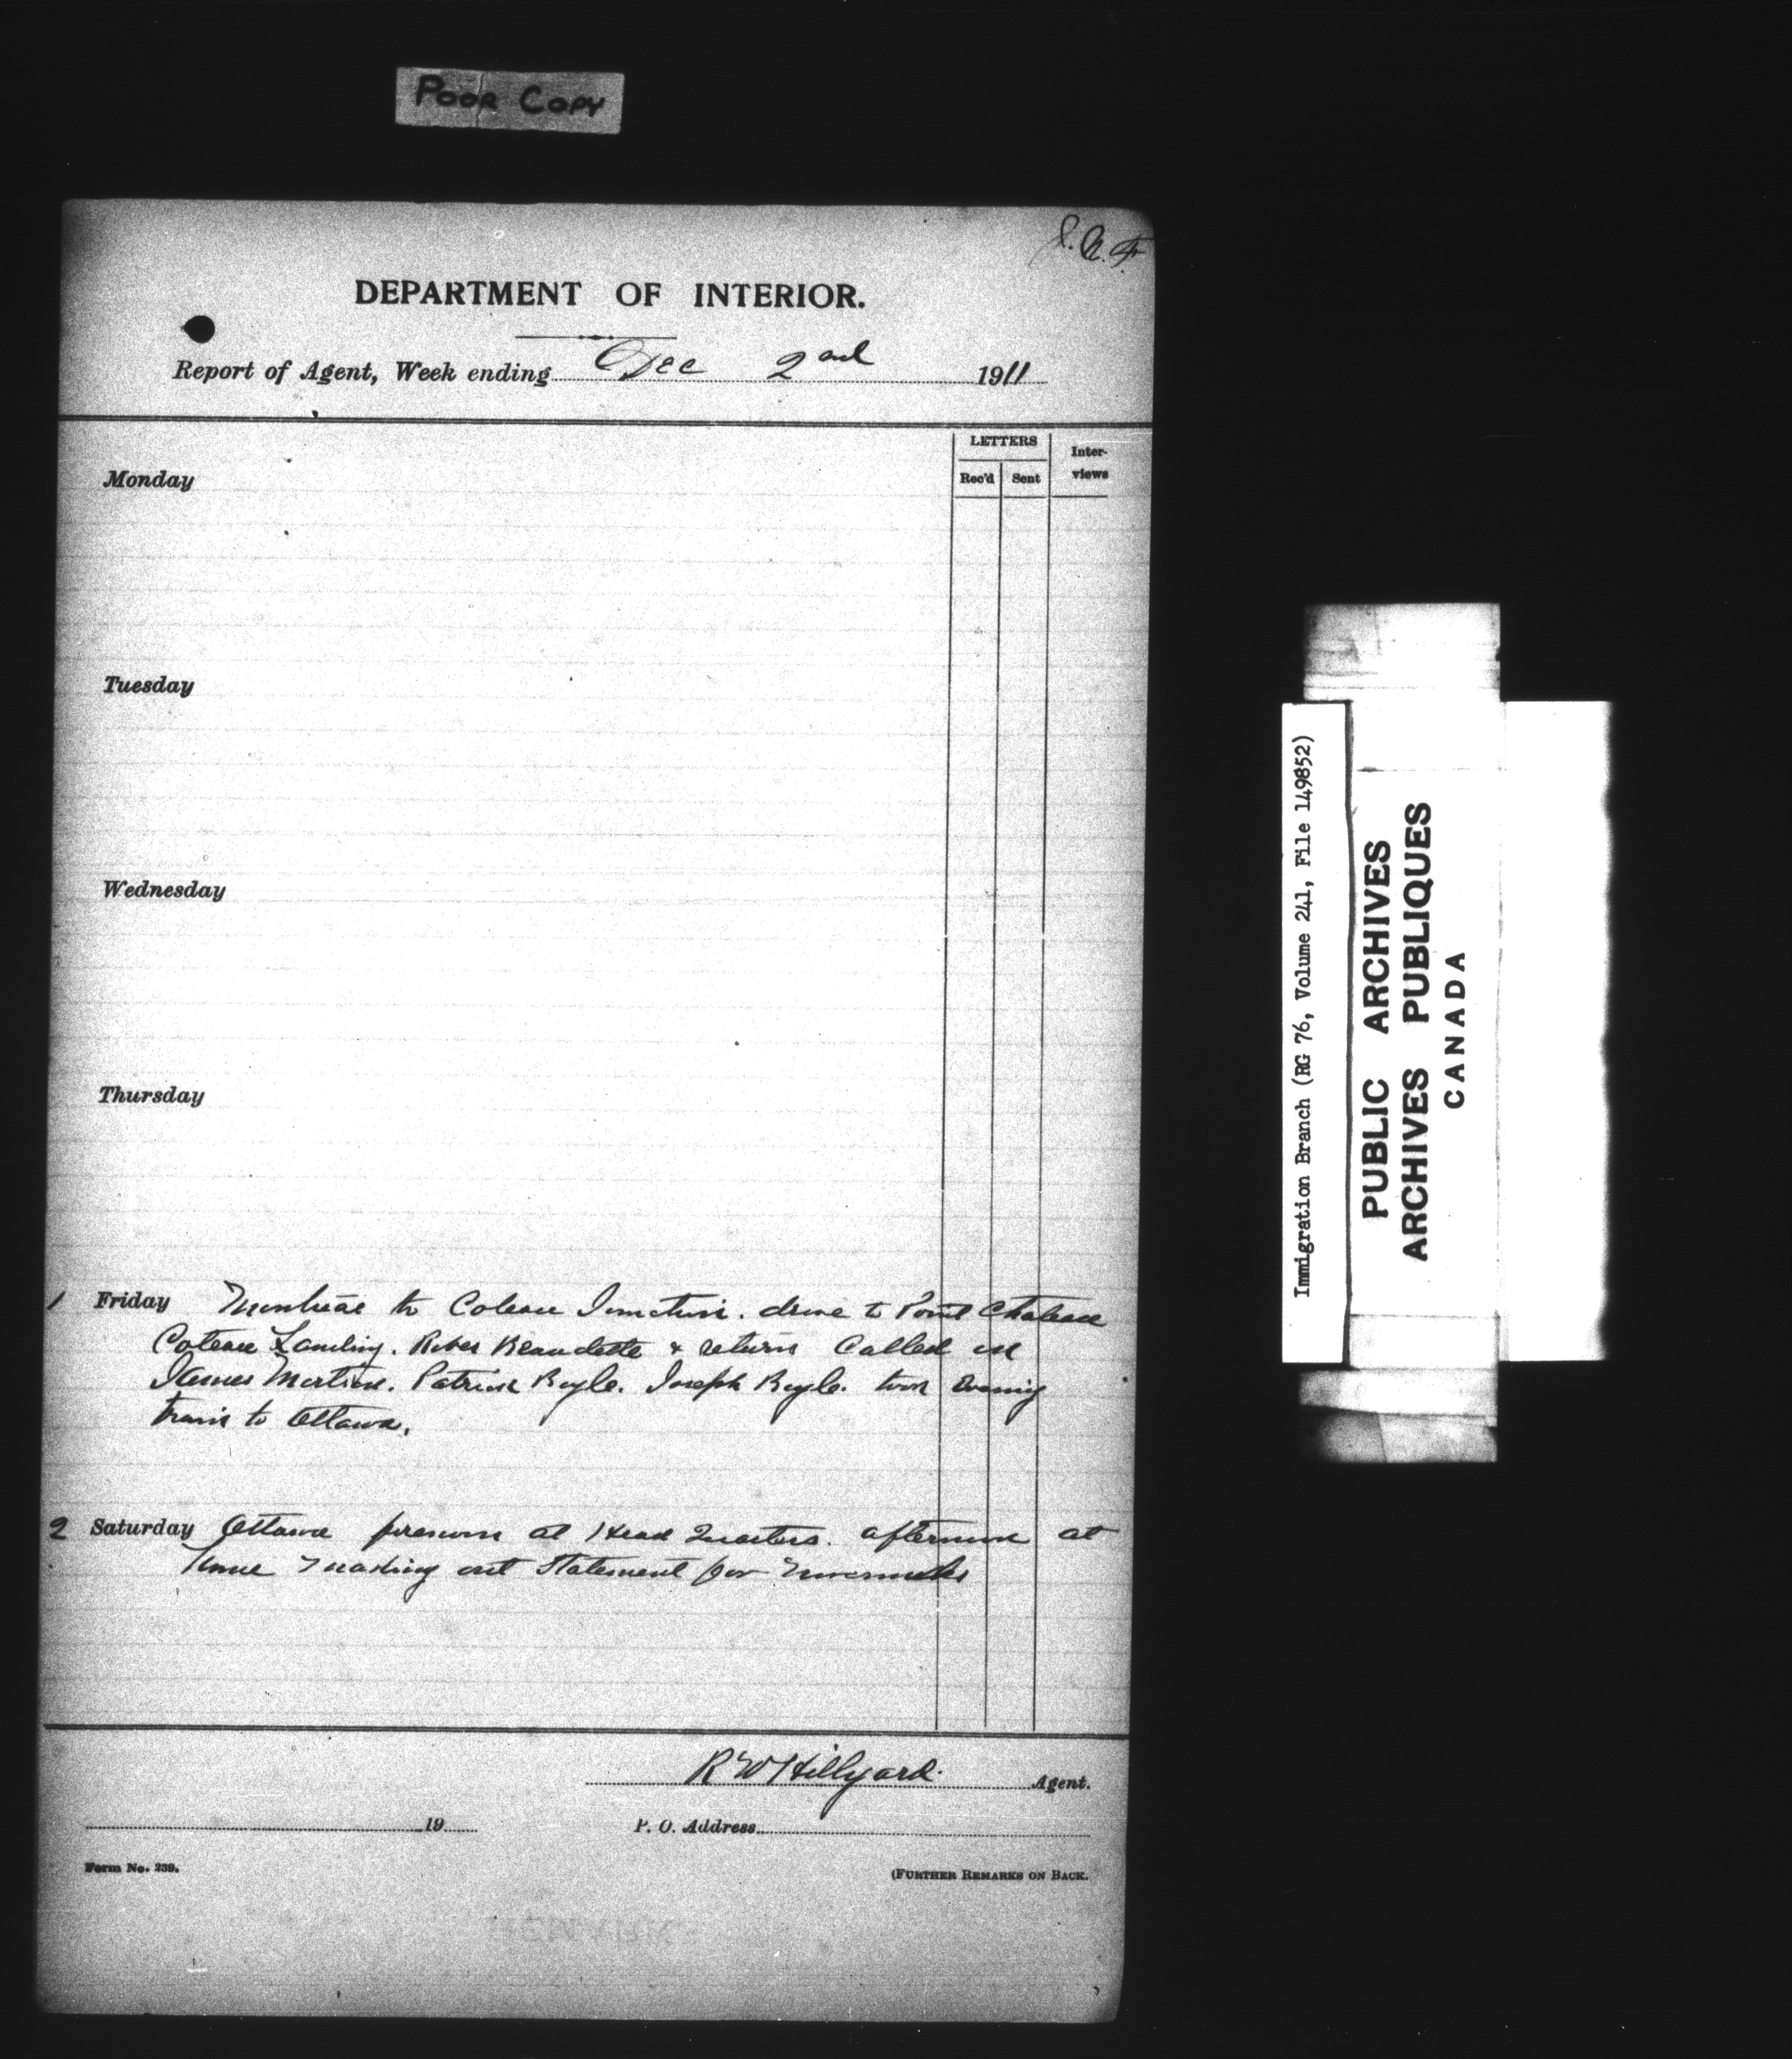 POOR COPY
J.N.F.
DEPARTMENT OF INTERIOR.
Report of Agent, Week ending Dec 2nd 1911
LETTERS
Inter-
views
Rec'd Sent
Monday
Tuesday
Wednesday
Thursday
1 Friday Montreal to Coteau Junction. drive to Point Chateau
Coteau Landing. River Beaudette & return Called on
James Martin. Patrick Boyle. Joseph Boyle. took Evening
train to Ottawa.
2 Saturday Ottawa forenoon at Head Quarters. afternoon at
home making out Statement for
RW Hillyard. Agent.
19 P. O. Address
Form No. 239. (FURTHER REMARKS ON BACK.
Immigration Branch (RG 76, Volume 241, File 149852)
PUBLIC ARCHIVES
ARCHIVES PUBLIQUES
CANADA